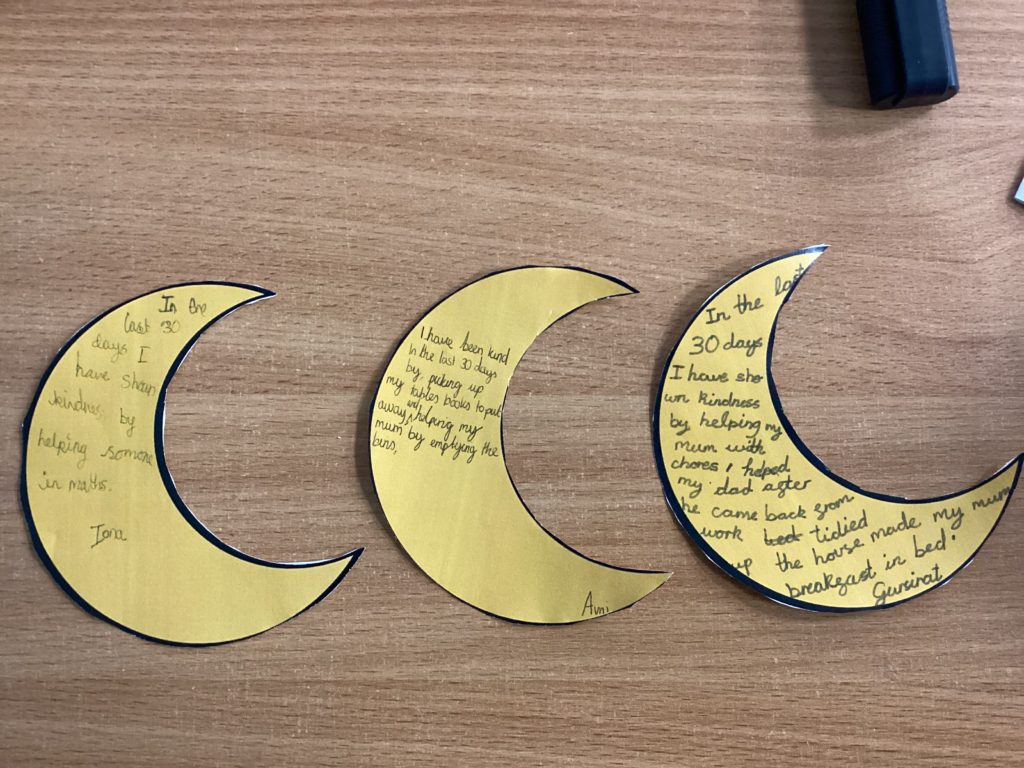 In the
last 30
days I
have shown
kindness by
helping someone
in maths.
Iona
I have been kind
in the last 30 days
by picking up
my tables books to put
away and helping my
mum by emptying the
bins,
Avni
In the last
30 days
I have sho
wn kindness
by helping my
mum with
chores, helped
my dad after
he came back from
work tidied
up the house made my mum
breakfast in bed.
Gursirat